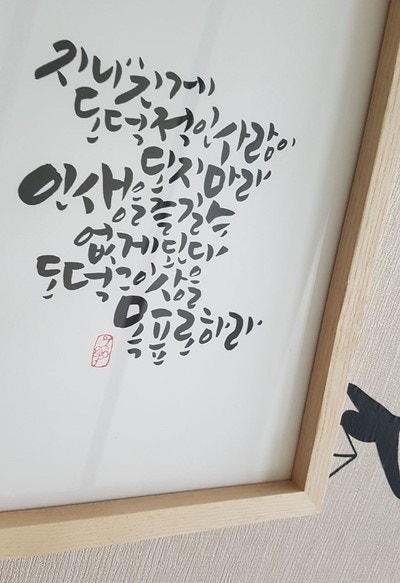 지나친게
도덕적인 사람이
되지마라
인생을 즐길 수
없게 된다
도덕 그 이상을
목표로 하라